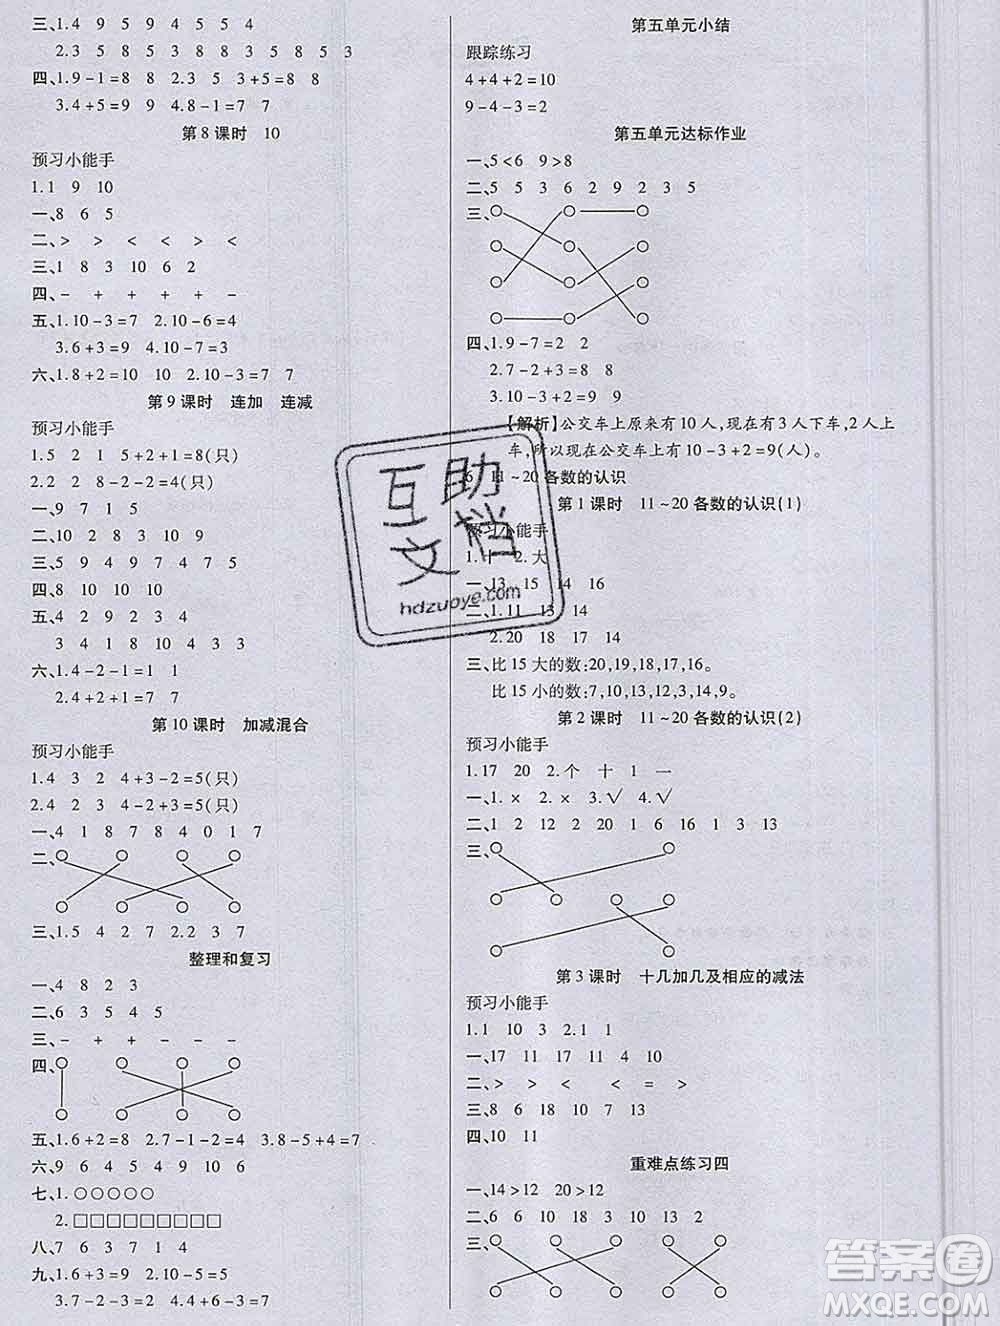 三、1.4 9 5 9 4 5 5 4
2.3 5 8 5 8 3 8 3 5 8 5 3
四、1.9-1=8 8 2.3 5 3+5=8 8
3.4+5=9 9 4.8-1=7 7
第8课时 10
预习小能手
1.1 9 10
一、8 6 5
二、> > > < > <
三、1 8 3 10 6 2
四、- + + + + -
五、1.10-3=7 2.10-6=4
3.6+3=9 4.10-7=3
六、1.8+2=10 10 2.10-3=7 7
第9课时 连加 连减
预习小能手
1.5 2 1 5+2+1=8(只)
2.2 2 8-2-2=4(只)
一、9 7 1 5
二、10 2 8 3 10 9
三、5 9 4 9 7 4 7 5
四、8 10 10 10
五、4 2 9 2 3 4
3 4 1 8 10 4 3 3
六、1.4-2-1=1 1
2.4+2+1=7 7
第10课时 加减混合
预习小能手
1.4 3 2 4+3-2=5(只)
2.4 2 3 4-2+3=5(只)
一、4 1 8 7 8 4 0 1 7
二、
三、1.5 4 2 7 2.2 3 7
整理和复习
一、4 8 2 3
二、6 3 5 4 5
三、- + - + -
四、
五、1.6+2=8 2.7-1-2=4 3.8-5+4=7
六、9 6 4 5 4 9 7 6 8
七、1.○○○○○
2.□□□□□□□□□
八、7 6 3 7 1 4
九、1.6+3=9 2.10-5=5
3.7-2=5 4.4+6-3=7
第五单元小结
跟踪练习
4+4+2=10
9-4-3=2
第五单元达标作业
一、5<6 9>8
二、5 5 3 6 2 9 2 3 5
三、
四、1.9-7=2 2
2.7-2+3=8 8
3.10-3+2=9 9
【解析】公交车上原来有10人,现在有3人下车,2人上
车,所以现在公交车上有10-3+2=9(人)。
6 11~20各数的认识
第1课时 11~20各数的认识(1)
预习小能手
1.十 2.大
一、13 15 14 16
二、1.11 13 14
2.20 18 17 14
三、比15大的数:20,19,18,17,16。
比15小的数:7,10,13,12,9,14。
第2课时 11~20各数的认识(2)
预习小能手
1.17 20 2.个 十 1 一
一、1.× 2.× 3.√ 4.√
二、1 2 12 2 20 1 6 16 1 3 13
三、
第3课时 十几加几及相应的减法
预习小能手
1.1 10 3 2.1 1
一、17 11 17 11 4 10
二、< > < < = >
三、8 6 18 10 7 13
四、10 11
重难点练习四
一、14>12 20>12
二、6 6 10 10 13 2
三、
互助
文档
hdzuoye.com
答案圈
MXQE.COM